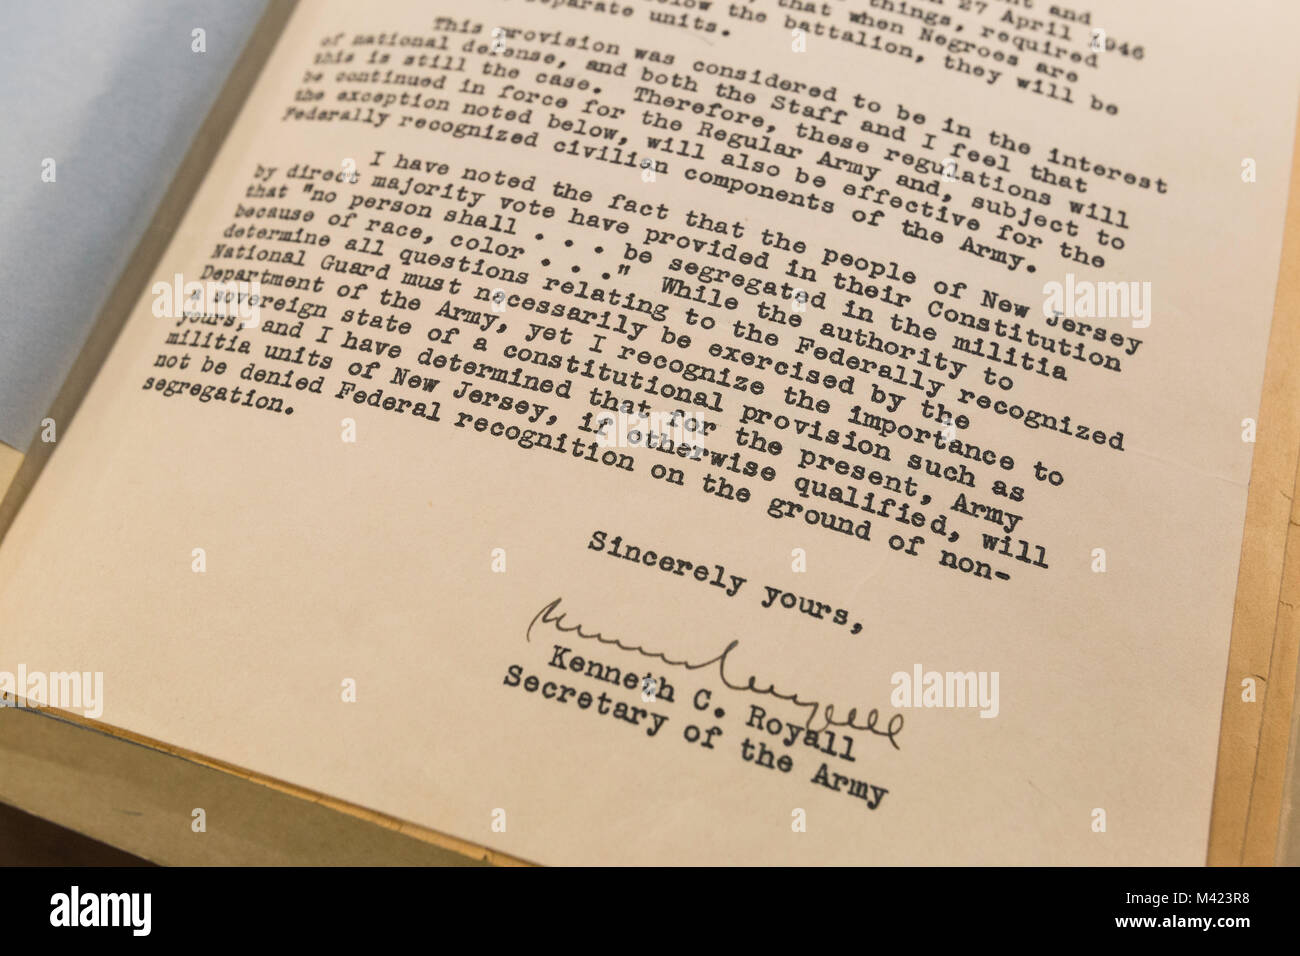 nt and
things, required
27 April 1946
below the battalion, that when Negroes are
separate units. they will be
This provision was considered to be in the interest
of national defense, and both the Staff and I feel that
this is still the case. Therefore, these regulations will
be continued in force for the Regular Army and, subject to
the exception noted below, will also be effective for the
Federally recognized civilian components of the Army.
I have noted the fact that the people of New Jersey
by direct majority vote have provided in their Constitution
that "no person shall . . . be segregated in the militia
because of race, color . . ." While the authority to
determine all questions relating to the Federally recognized
National Guard must necessarily be exercised by the
Department of the Army, yet I recognize the importance to
a sovereign state of a constitutional provision such as
yours, and I have determined that for the present, Army
militia units of New Jersey, if otherwise qualified, will
not be denied Federal recognition on the ground of non-
segregation.
Sincerely yours,
Kenneth C. Royall
Secretary of the Army
alamy
a
alamy stock photo
Image ID: M423R8
www.alamy.com